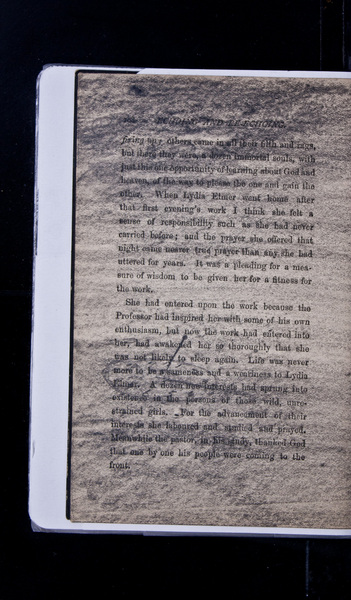 ECHOING AND RE-ECHOING.
others came in all their filth and rags,
but there they were, a dozen immortal souls, with
just this one opportunity of learning about God and
heaven, of the way to please the one and gain the
other. When Lydia Elmer went home after
that first evening's work I think she felt a
sense of responsibility such as she had never
carried before; and the prayer she offered that
night came nearer true prayer than any she had
uttered for years. It was a pleading for a mea-
sure of wisdom to be given her for a fitness for
the work.
She had entered upon the work because the
Professor had inspired her with some of his own
enthusiasm, but now the work had entered into
her, had awakened her so thoroughly that she
was not likely to sleep again. Life was never
more to be a sameness and a weariness to Lydia
Elmer. A dozen new interests had sprung into
existence in the persons of those wild, unre-
strained girls. For the advancement of their
interests she laboured and studied and prayed.
Meanwhile the pastor, in his study, thanked God
that one by one his people were coming to the
front.